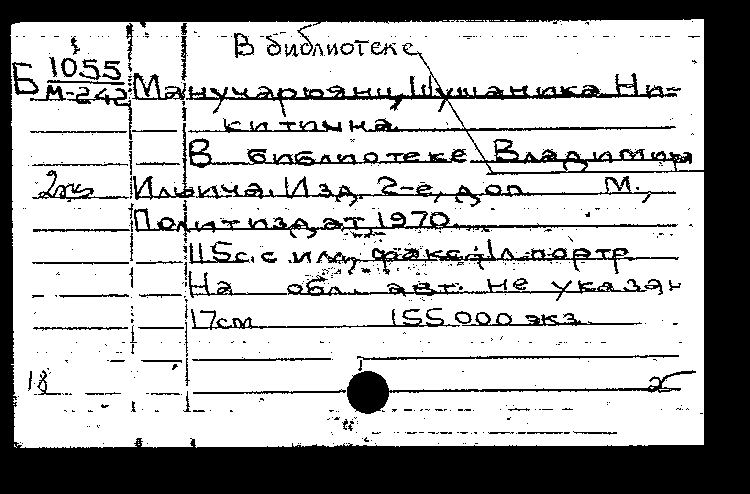 В библиотеке
Б 1055
М-242
Манучарьянц, Шушаника Ни-
китична.
В библиотеке Владимира
2экз Ильича. Изд. 2-е, доп. М.,
Политиздат, 1970.
115с. с ил., факс.; 1л. портр.
На обл. авт. не указан
17см 155.000 экз.
18